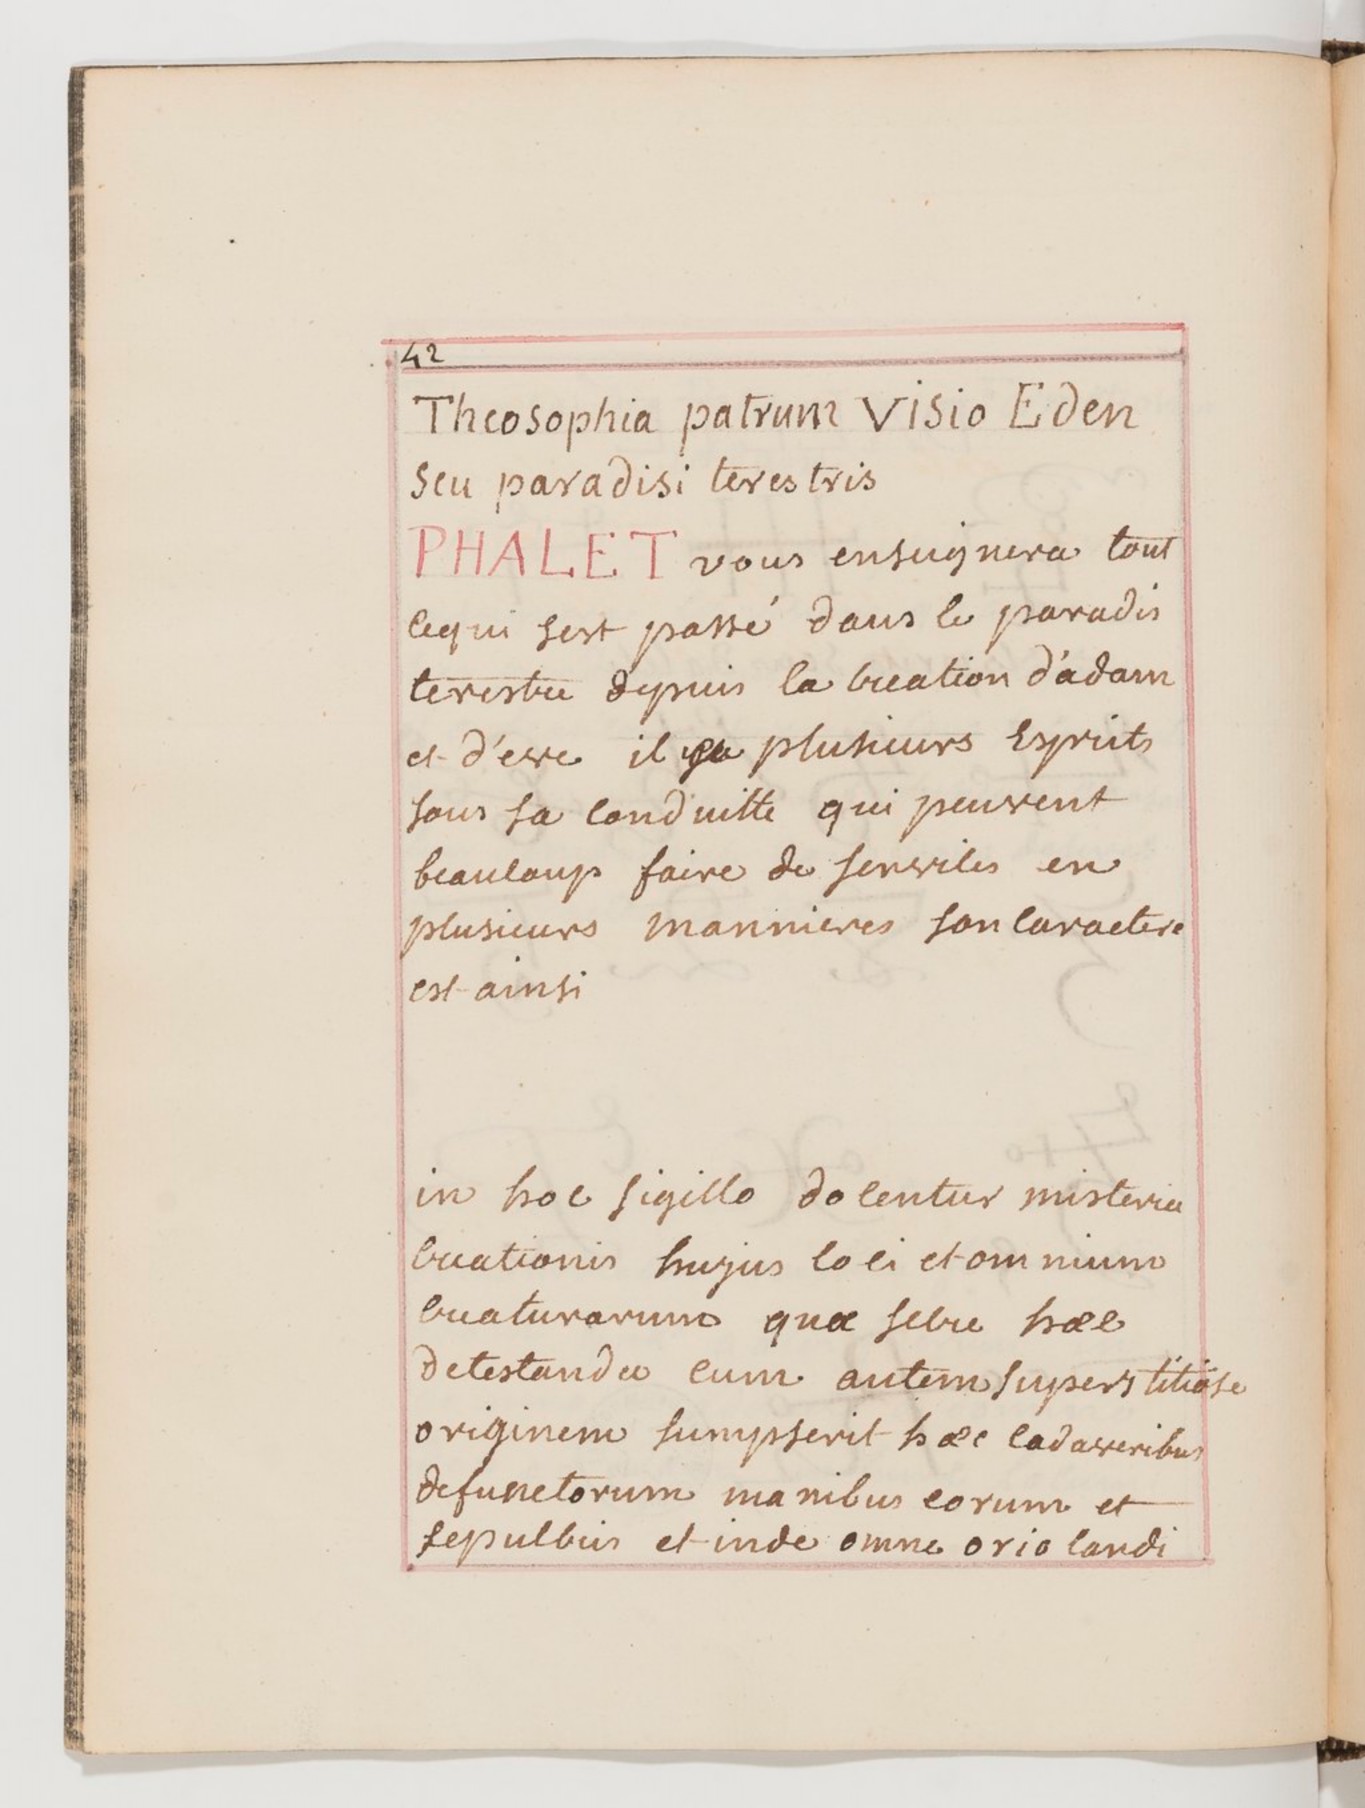 42
Theosophia patrum Visio Eden
seu paradisi terestris
PHALET vous enseignera tout
cequi sest passé dans le paradis
terestre depuis la creation d'adam
et d'eve il ya plusieurs Esprits
sous sa conduitte qui peuvent
beaucoup faire de services en
plusieurs mannieres son caractere
est ainsi
in hoc sigillo docentur misteria
creationis hujus loci et omnium
creaturarum quæ scire hæc
detestanda cum autem superstitiose
originem sumpserit hæc cadaveribus
defunctorum manibus eorum et
sepulcris et inde omne oriolandi